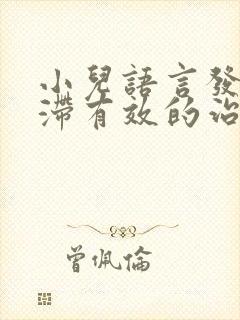 小兒語言發
滯有效的治
曾佩倫